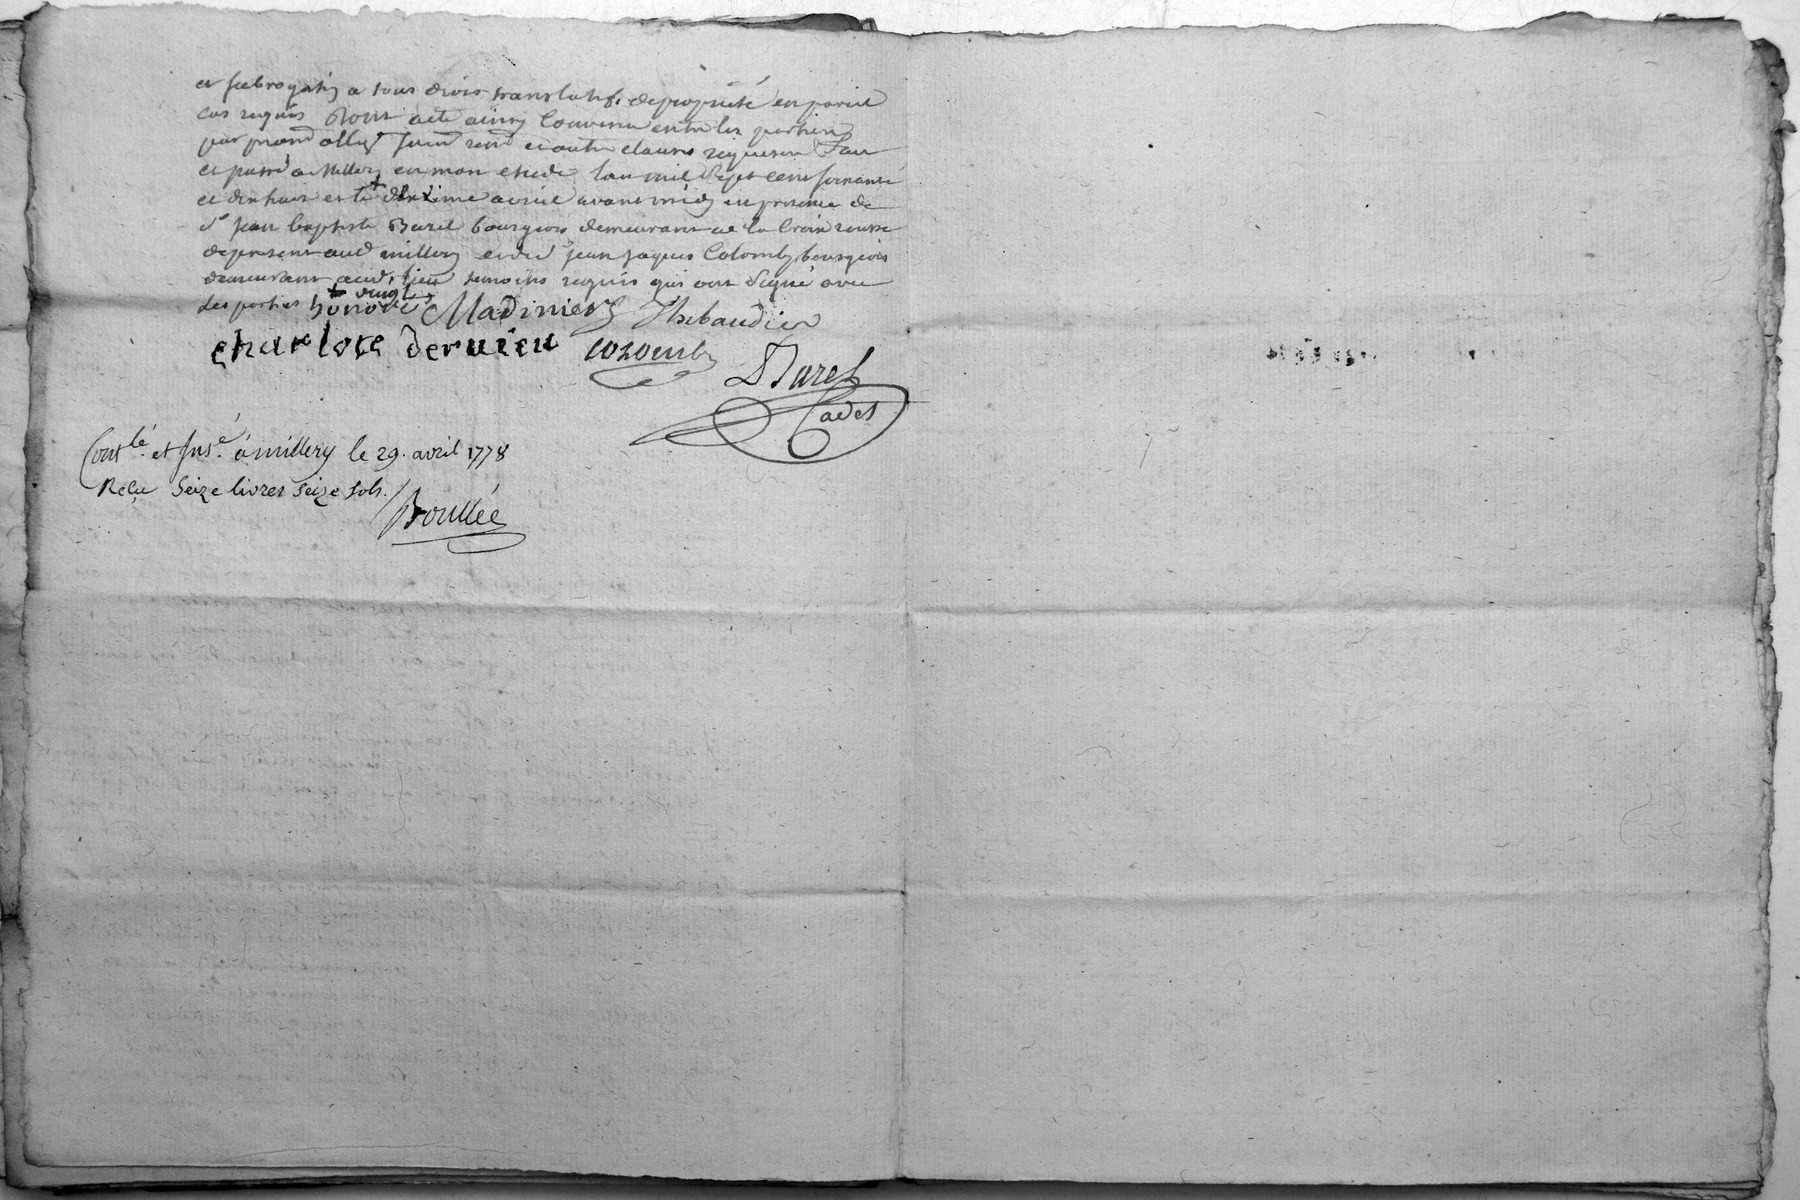 et subrogation a tous droits translatifs de propriété en pareil
cas requis Dont acte ainsy Convenu entre les parties
par et autre clauses requises Fait
et passé a Millery en mon etude lan mil Sept cent soixante
et dix huit et le avril avant midy en presence de
sr jean baptiste Burel bourgeois demeurant a la Croix rousse
de present aud millery et de sr jean jaques Colomb bourgeois
demeurant aud. lieu temoins requis qui ont Signé avec
les parties + vingt
honoré Madinier Thibaudier
charlote dervieu colomb
Burel
Cadet
Contlé. et Insé. à millery le 29. avril 1778
Reçu Seize livres Seize sols.
Boullée